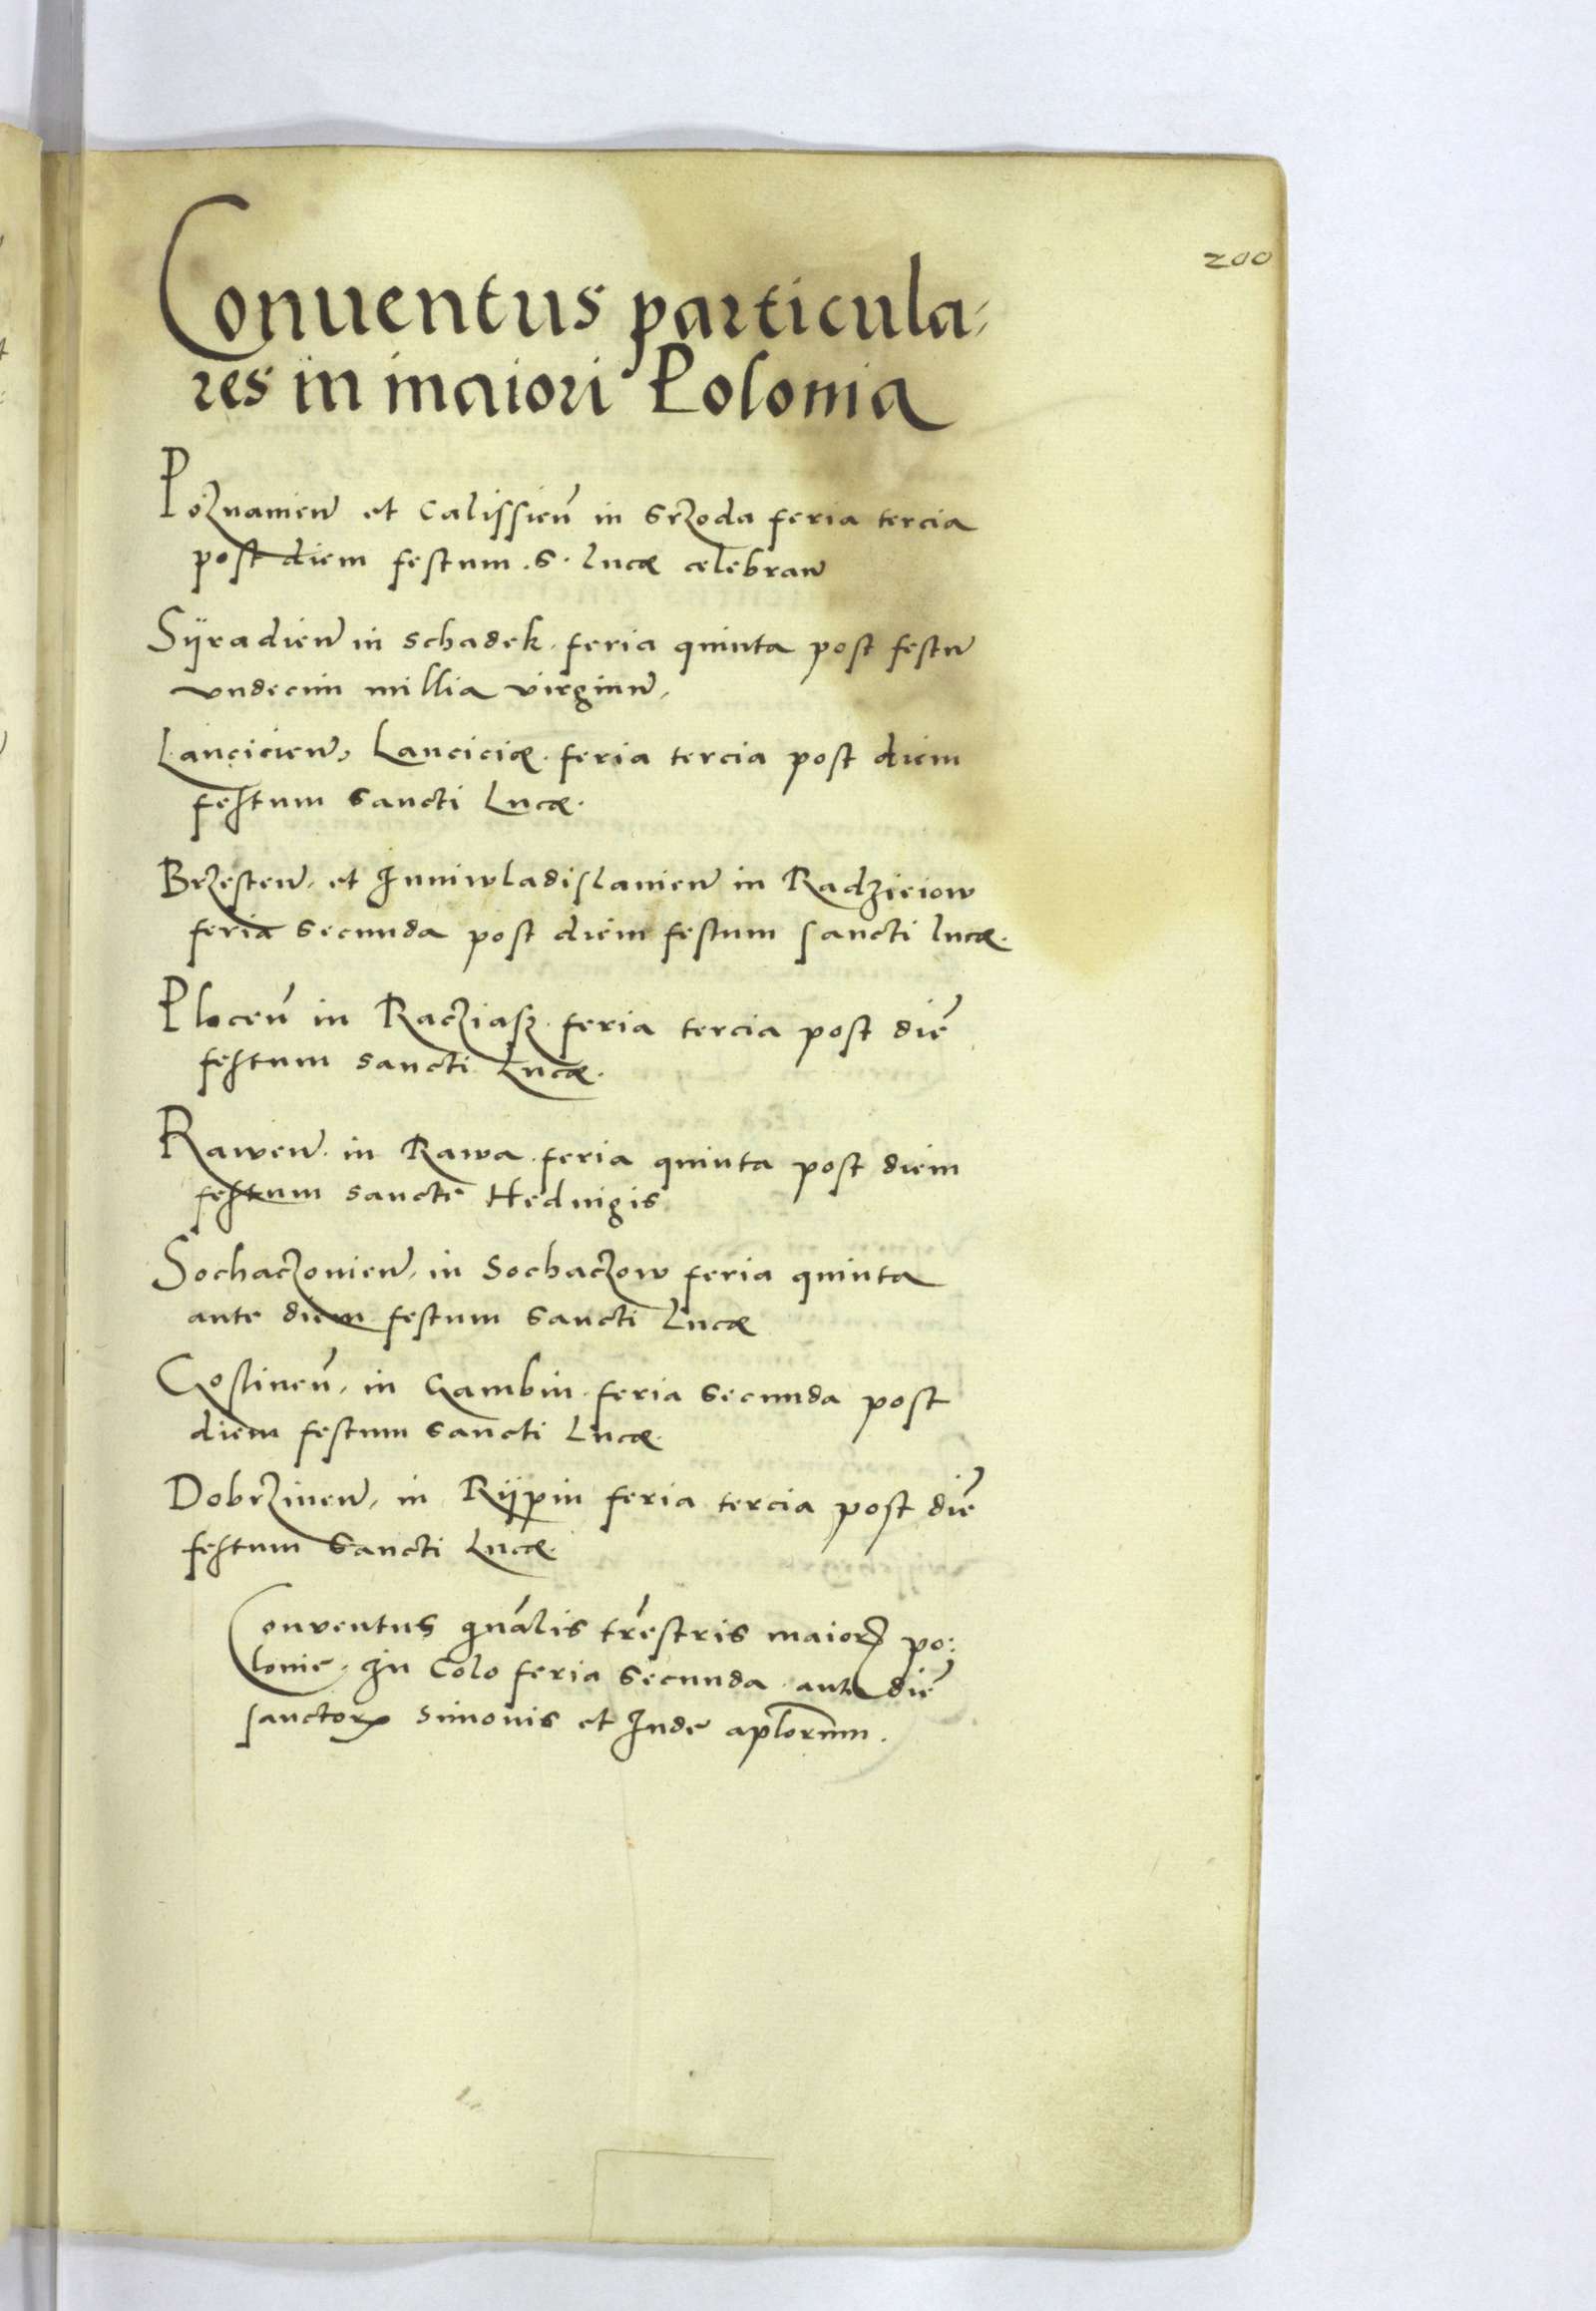 200
Conuentus particula-
res in maiori Polonia
Poznanien et Calissien in Srzoda feria tercia
post diem festum .S. Lucæ celebran
Sÿradien in Schadek. feria quinta post festu
vndecim millia virginu,
Lancicien, Lanciciæ. feria tercia post diem
festum Sancti Lucæ.
Brzesten, et Iuniwladislauien in Radzieiow
feria Secunda post diem festum sancti Lucæ.
Plocen in Racziasz. feria tercia post diē
festum sancti Lucæ.
Rawen. in Rawa. feria quinta post diem
festum sancte Heduigis
Sochaczouien, in Sochaczow feria quinta
ante diem festum Sancti Lucæ
Gostinen, in Gambin. feria Secunda post
diem festum Sancti Lucæ.
Dobrzinen, in Rÿpin feria tercia post diē
festum Sancti Lucæ.
Conventus gnalis trestris maioris po:
lonie, In Colo feria Secunda ante diē
sanctorꝝ Simonis et Iude aplorum.